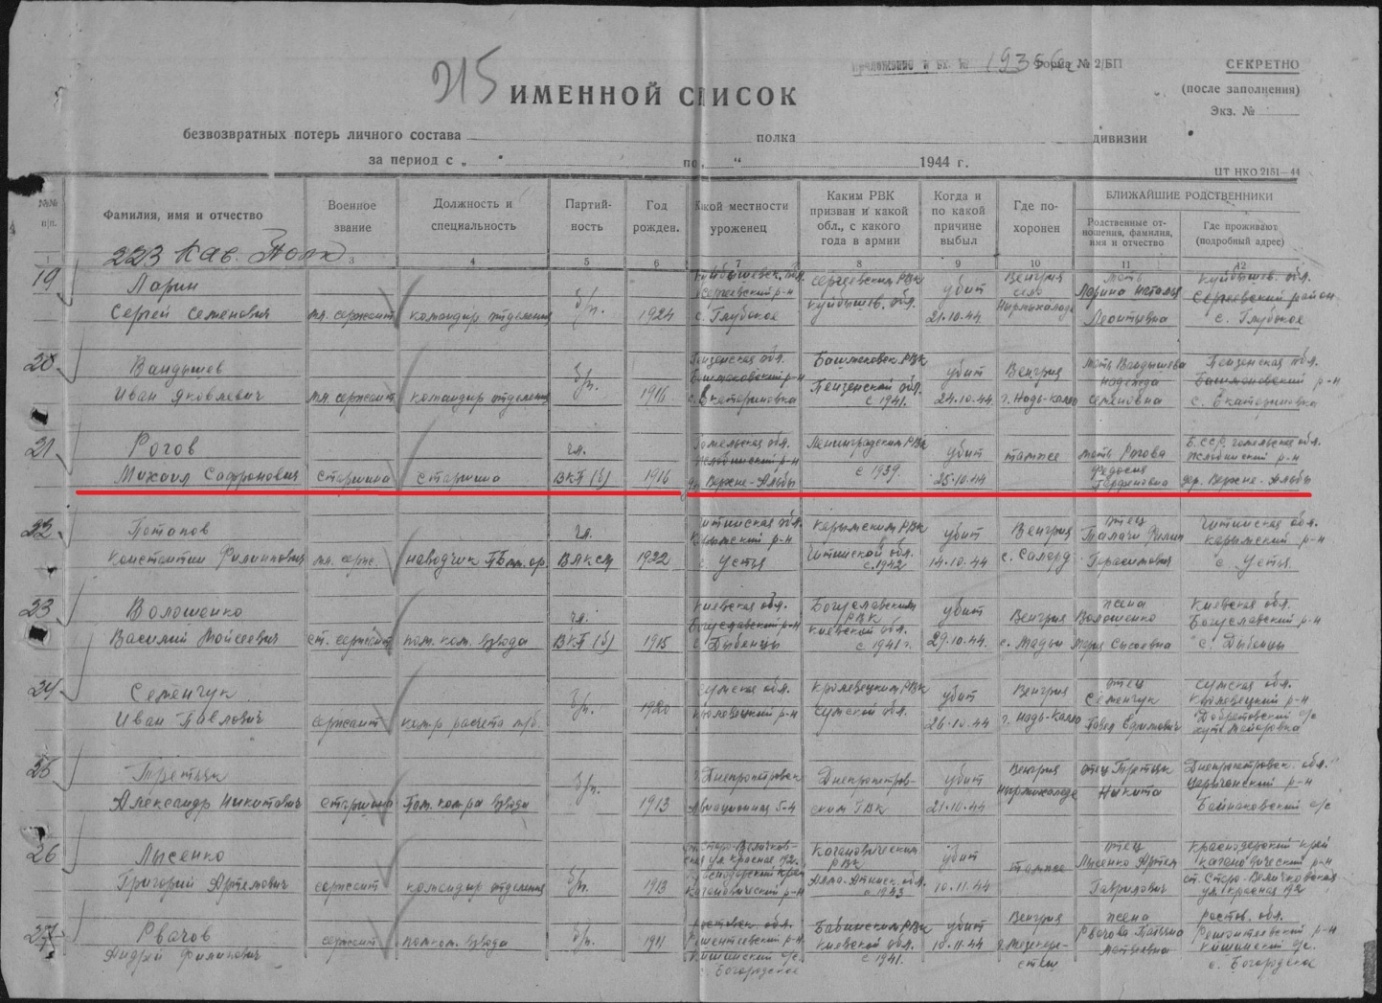 215
1935
Форма № 2/БП
СЕКРЕТНО
(после заполнения)
Экз. №
ИМЕННОЙ СПИСОК
безвозвратных потерь личного состава полка дивизии
за период с „ по „ “ 1944 г.
ЦТ НКО 2151—44
№№ п/п.
Фамилия, имя и отчество
Военное звание
Должность и специальность
Партийность
Год рожден.
Какой местности уроженец
Каким РВК призван и какой обл., с какого года в армии
Когда и по какой причине выбыл
Где похоронен
БЛИЖАЙШИЕ РОДСТВЕННИКИ
Родственные отношения, фамилия, имя и отчество
Где проживают (подробный адрес)
1 3 4 5 6 7 8 9 10 11 12
223 Кав. Полк
19 Ларин Сергей Семенович мл. сержант командир отделения б/п. 1924 Куйбышевск. обл. Сергиевский р-н с. Глубокое Сергиевским РВК Куйбышев. обл. убит 21.10.44 Венгрия село мать Ларина Наталья Леонтьевна Куйбышев. обл. Сергиевский район с. Глубокое
20 Вандышев Иван Яковлевич мл. сержант командир отделения б/п. 1916 Пензенская обл. Башмаковский р-н с. Екатериновка Башмаковск. РВК Пензенской обл. с 1941. убит 24.10.44 Венгрия г. Надь-Калло мать Вандышева Надежда Семеновна Пензенская обл. Башмаковский р-н с. Екатериновка
21 Рогов Михаил Сафронович старшина старшина чл. ВКП(б) 1916 Гомельская обл. Жлобинский р-н Верхне-Альбы Ленинградским РВК с 1939 убит 25.10.44 там же мать Рогова Федосия БССР Гомельская обл. Жлобинский р-н дер. Верхне-Альбы
22 Потопов Константин Филиппович мл. серж. наводчик чл. ВЛКСМ 1922 Читинская обл. Карымский р-н с. Усть Карымским РВК Читинской обл. с 1942 убит 14.10.44 Венгрия с. Салорд отец Герасимович Читинская обл. Карымский р-н с. Усть
23 Волошенко Василий Мойсеевич ст. сержант пом. ком. взвода чл. ВКП(б) 1915 Киевская обл. Богуславский р-н с. Дыбенцы Богуславским РВК Киевской обл. с 1941 г. убит 29.10.44 Венгрия с. Мадьи жена Волошенко Мария Сысоевна Киевская обл. Богуславский р-н с. Дыбенцы
24 Семенчук Иван Павлович сержант ком-р расчета б/п. 1920 Сумская обл. Кролевецкий р-н Кролевецким РВК Сумской обл. убит 26.10.44 Венгрия г. Надь-Калло отец Семенчук Павел Ефимович Сумская обл. Кролевецкий р-н
25 Третьяк Александр Никитович старшина Пом. ком-ра взвода б/п. 1913 Днепропетровск Днепропетровским РВК убит 21.10.44 Венгрия отец Третьяк Никита Днепропетровск. обл. Царичанский р-н
26 Лысенко Григорий Артемович сержант командир отделения б/п. 1913 Краснодарский край Кагановический р-н Кагановическим РВК Алма-Атинск. обл. с 1943 убит 10.11.44 там же отец Лысенко Артем Гаврилович Краснодарский край Кагановический р-н ст. Старо-Величковская ул. Красная 192
27 Рвачов Андрей сержант пом. ком. взвода б/п. 1911 Ростовск. обл. с. Богородское РВК Киевской обл. с 1941. убит 10.11.44 Венгрия жена Рвачова Матвеевна Ростов. обл.